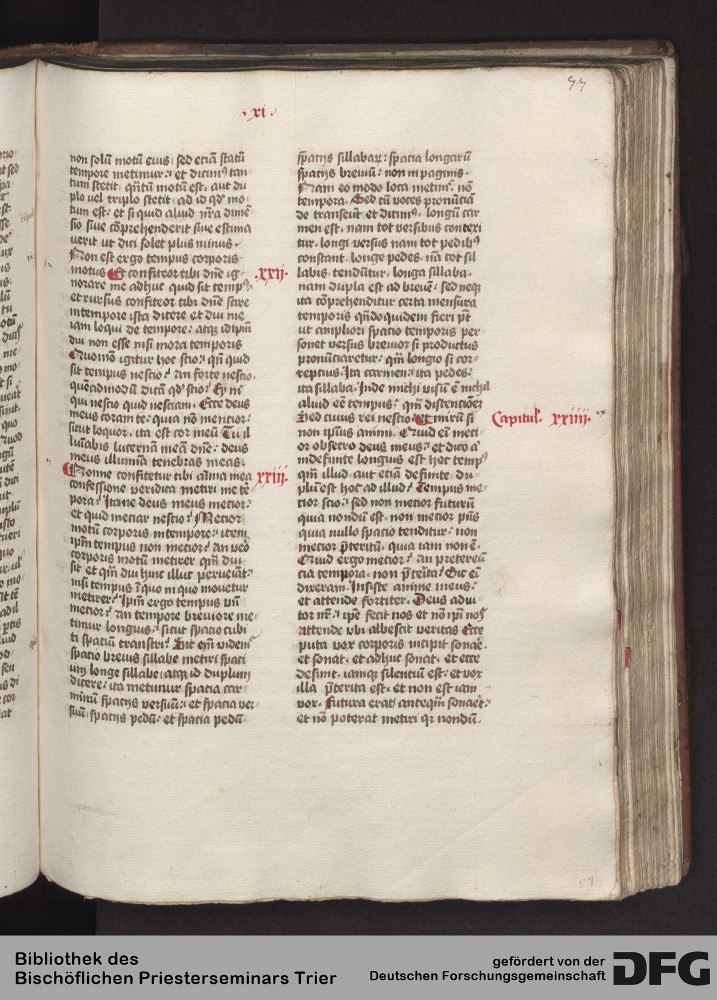 ·xi·
non solū motū eius· sed etiā statū
tempore metimur: et dicimꝰ tan-
tum stetit· qn̄tū motū est· aut du
plo uel triplo stetit· ad id qd̓ mo-
tum est· et si quid aliud nr̄a dimē-
sio siue cōprehenderit siue estima
uerit ut dici solet plus minus·
Non est ergo tempus corporis
motus Et confiteor tibi dn̄e ig-
·xxij·
norare me adhuc quid sit tempꝰ·
et rursus confiteor tibi dn̄e scire
in tempore ista dicere et diu me
iam loqui de tempore: atqꝫ id ip̄m
diu non esse nisi mora temporis
Quomō igitur hoc scio: qn̄ quid
sit tempus nescio? an forte nescio·
quēadmodū dicā qd̓ scio? Ey m̄
qui nescio quid nesciam· Ecce deus
meus coram te: quia nō mencior:
sicut loquor· ita est cor meū Tu il
luīabis lucernā meā dn̄e: deus
meus illumīa tenebras meas·
Nonne confitetur tibi aīma mea
xxiij·
confessione veridica metiri me tē-
pora? Itane deus meus metior:
et quid meciar nescio? Mecior
motū corporis in tempore: item
ip̄m tempus non mecior? an uero
corporis motū metirer qm̄ diu
sit et qm̄ diu hinc illuc perueiat:
nisi tempus ī quo mouetur
metirer? Ip̄m ergo tempus vn̄
mecior? an tempore breuiore me-
timur longius: sicut spacio cubi
ti spaciū transtri? Sic em̄ videmꝰ
spacio breuis sillabe metiri spaci
um longe sillabe: atqꝫ id duplum
dicere: ita metimur spacia car-
minū spacijs versuū: et spacia ver-
suū· spacijs pedū: et spacia pedū·
77
spacijs sillabaꝝ: spacia longarū
spacijs breuiū: non in paginis·
Nam eo modo loca metimꝰ· nō
tempora· Sed cū voces pronūcia
do transeūt et dicimꝰ· longū car
men est· nam tot versibus contexi
tur· longi versus nam tot pedibꝰ
constant· longe pedes· nā tot sil
labis tendūtur· longa sillaba·
nam dupla est ad breuē: sed neqꝫ
ita cōprehenditur certa mensura
temporis qn̄doquidem fieri pt̄
ut ampliori spacio temporis per
sonet versus breuior si productius
pronūciaretur: qm̄ longio si cor-
reptius· Ita carmen: ita pedes:
ita sillaba· Inde michi visū ē nichil
aliud eē tempus: qm̄ distencioēȝ
Sed cuius rei nescio· et mirū si
Capitul᷒· xxiiij·
non ipsius animi· Quid ei meti
or obsecro deus meus: et dico a᷒
indefinite longius est hoc tempꝰ
qm̄ illud· aut etiā definite· du
plū est hoc ad illud? Tempus me-
tior scio: sed non mecior futurū
quia nondū est· non mecior pn̄s
quia nullo spacio tenditur: non
mecior p̄teritū· quia iam non ē·
Quid ergo mecior? an pretereū
cia tempora· non p̄terita? Sic ei
dixeram· Insiste anime meus:
et attende fortiter· Deus adiu
tor nr̄: ip̄e fecit nos et nō ip̄i nos
attende vbi albescit veritas Ecce
puta vox corporis incipit sonare·
et sonat· et adhuc sonat· et ecce
desinit· iamqꝫ silenciū est: et vox
illa p̄terita est· et non est iam
vox· Futura erat anteqm̄ sonaret:
et nō poterat metiri qꝛ nondū·
Bibliothek des
Bischöflichen Priesterseminars Trier
gefördert von der
Deutschen Forschungsgemeinschaft
DFG